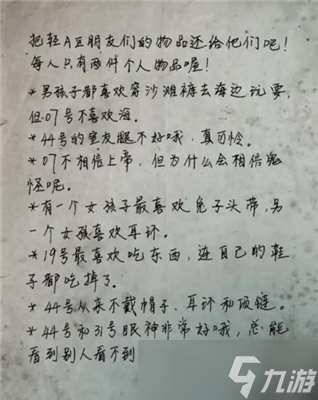 把轻A豆朋友们的物品还给他们吧！
每人只有两件个人物品喔！
*男孩子都喜欢穿沙滩裤去海边玩耍，
但07号不喜欢海。
*44号的室友腿不好哦，真可怜。
*07不相信上帝，但为什么会相信鬼
怪呢。
*有一个女孩子最喜欢兔子头带，另
一个女孩喜欢耳环。
*19号最喜欢吃东西，连自己的鞋
子都吃掉了。
*44号从来不戴帽子、耳环和项链。
*44号和31号眼神非常好哦，总能
看到别人看不到
九游